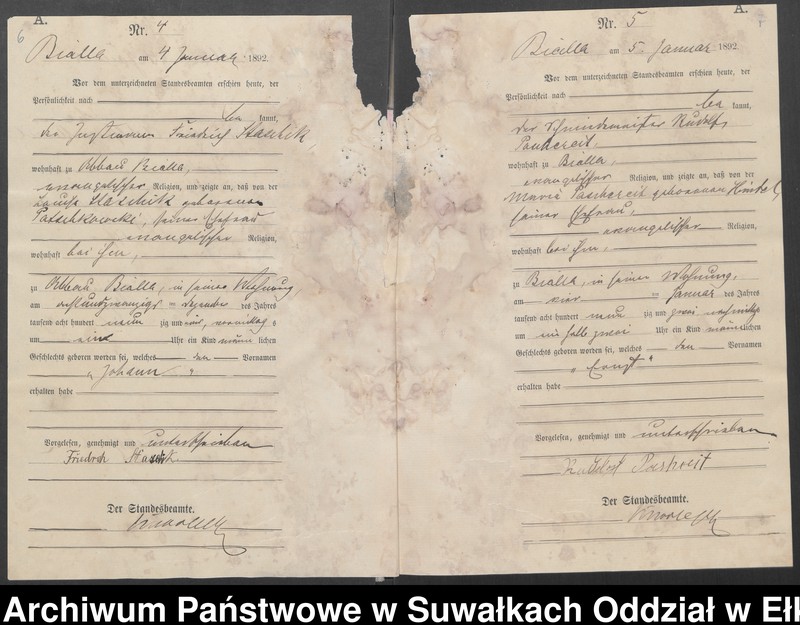 A.
6
Nr. 4
Bialla am 4 Januar 1892.
Vor dem unterzeichneten Standesbeamten erschien heute, der
Persönlichkeit nach
be kannt,
der Friedrich
wohnhaft zu Abbau Bialla,
evangelischer Religion, und zeigte an, daß von der
geborenen
seiner Ehefrau
evangelischer Religion,
wohnhaft bei ihm,
zu Abbau Bialla, in seiner Wohnung
am achtundzwanzigsten Dezember des Jahres
tausend acht hundert neun zig und
um ein Uhr ein Kind männlichen
Geschlechts geboren worden sei, welches den Vornamen
„Johann“
erhalten habe
Vorgelesen, genehmigt und unterschrieben
Friedrich
Der Standesbeamte.
A.
Nr. 5
Bialla am 5 Januar 1892
Vor dem unterzeichneten Standesbeamten erschien heute, der
Persönlichkeit nach
be kannt,
der Schmiedemeister Rudolf
wohnhaft zu Bialla,
evangelischer Religion, und zeigte an, daß von der
Marie geborenen
seiner Ehefrau,
evangelischer Religion,
wohnhaft bei ihm,
zu Bialla, in seiner Wohnung,
am vier Januar des Jahres
tausend acht hundert neun zig und zwei nachmittags
um ein halb zwei Uhr ein Kind männlichen
Geschlechts geboren worden sei, welches den Vornamen
„Ernst“
erhalten habe
Vorgelesen, genehmigt und unterschrieben
Der Standesbeamte.
Archiwum Państwowe w Suwałkach Oddział w Ełk